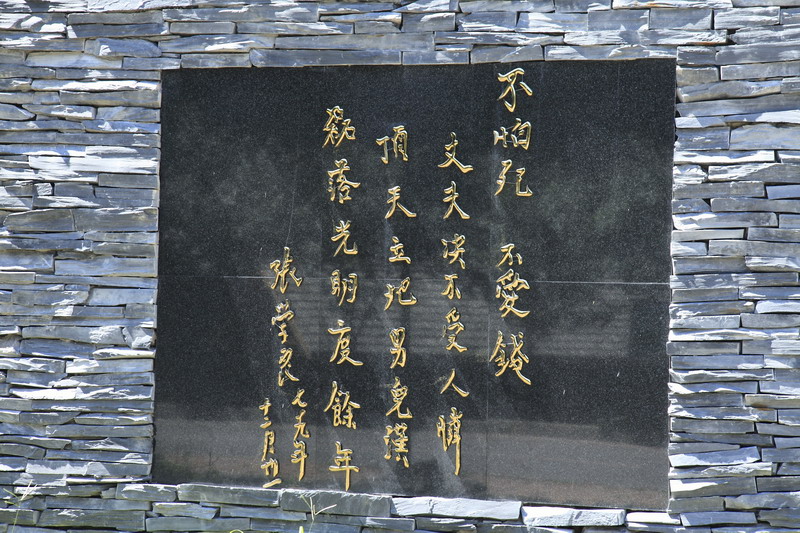 不怕死 不愛錢
丈夫决不受人憐
頂天立地男兒漢
磊落光明度餘年
張學良
七九年
十二月廿一